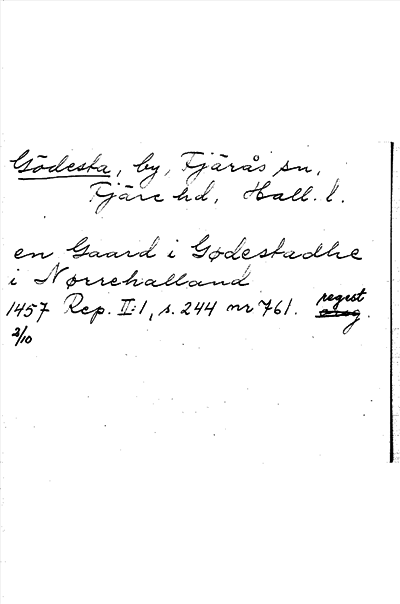 Gödesta, by, Fjärås sn,
Fjäre hd, Hall. l.
en Gaard i Gødestadhe
i Nørrehalland
1457 Rep. II:1, s. 244 nr 761. regest.
2/10